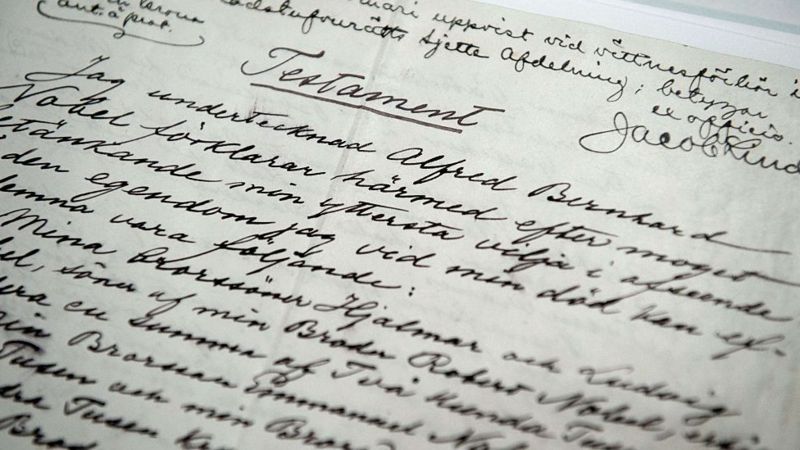 uppvist vid vittnesförhör i
Rådstufvurätts sjette Afdelning; betygar
ex officio.
Jacob
Testament
Jag undertecknad Alfred Bernhard
Nobel förklarar härmed efter moget
betänkande min yttersta vilja i afseende
den egendom jag vid min död kan ef-
lemna vara följande:
Mina Brorssöner Hjalmar och Ludvig
bel, söner af min Broder Robert Nobel,
en summa af Två Hundra Tusen
Brorsson Emmanuel
Tusen och min Bror
dra Tusen